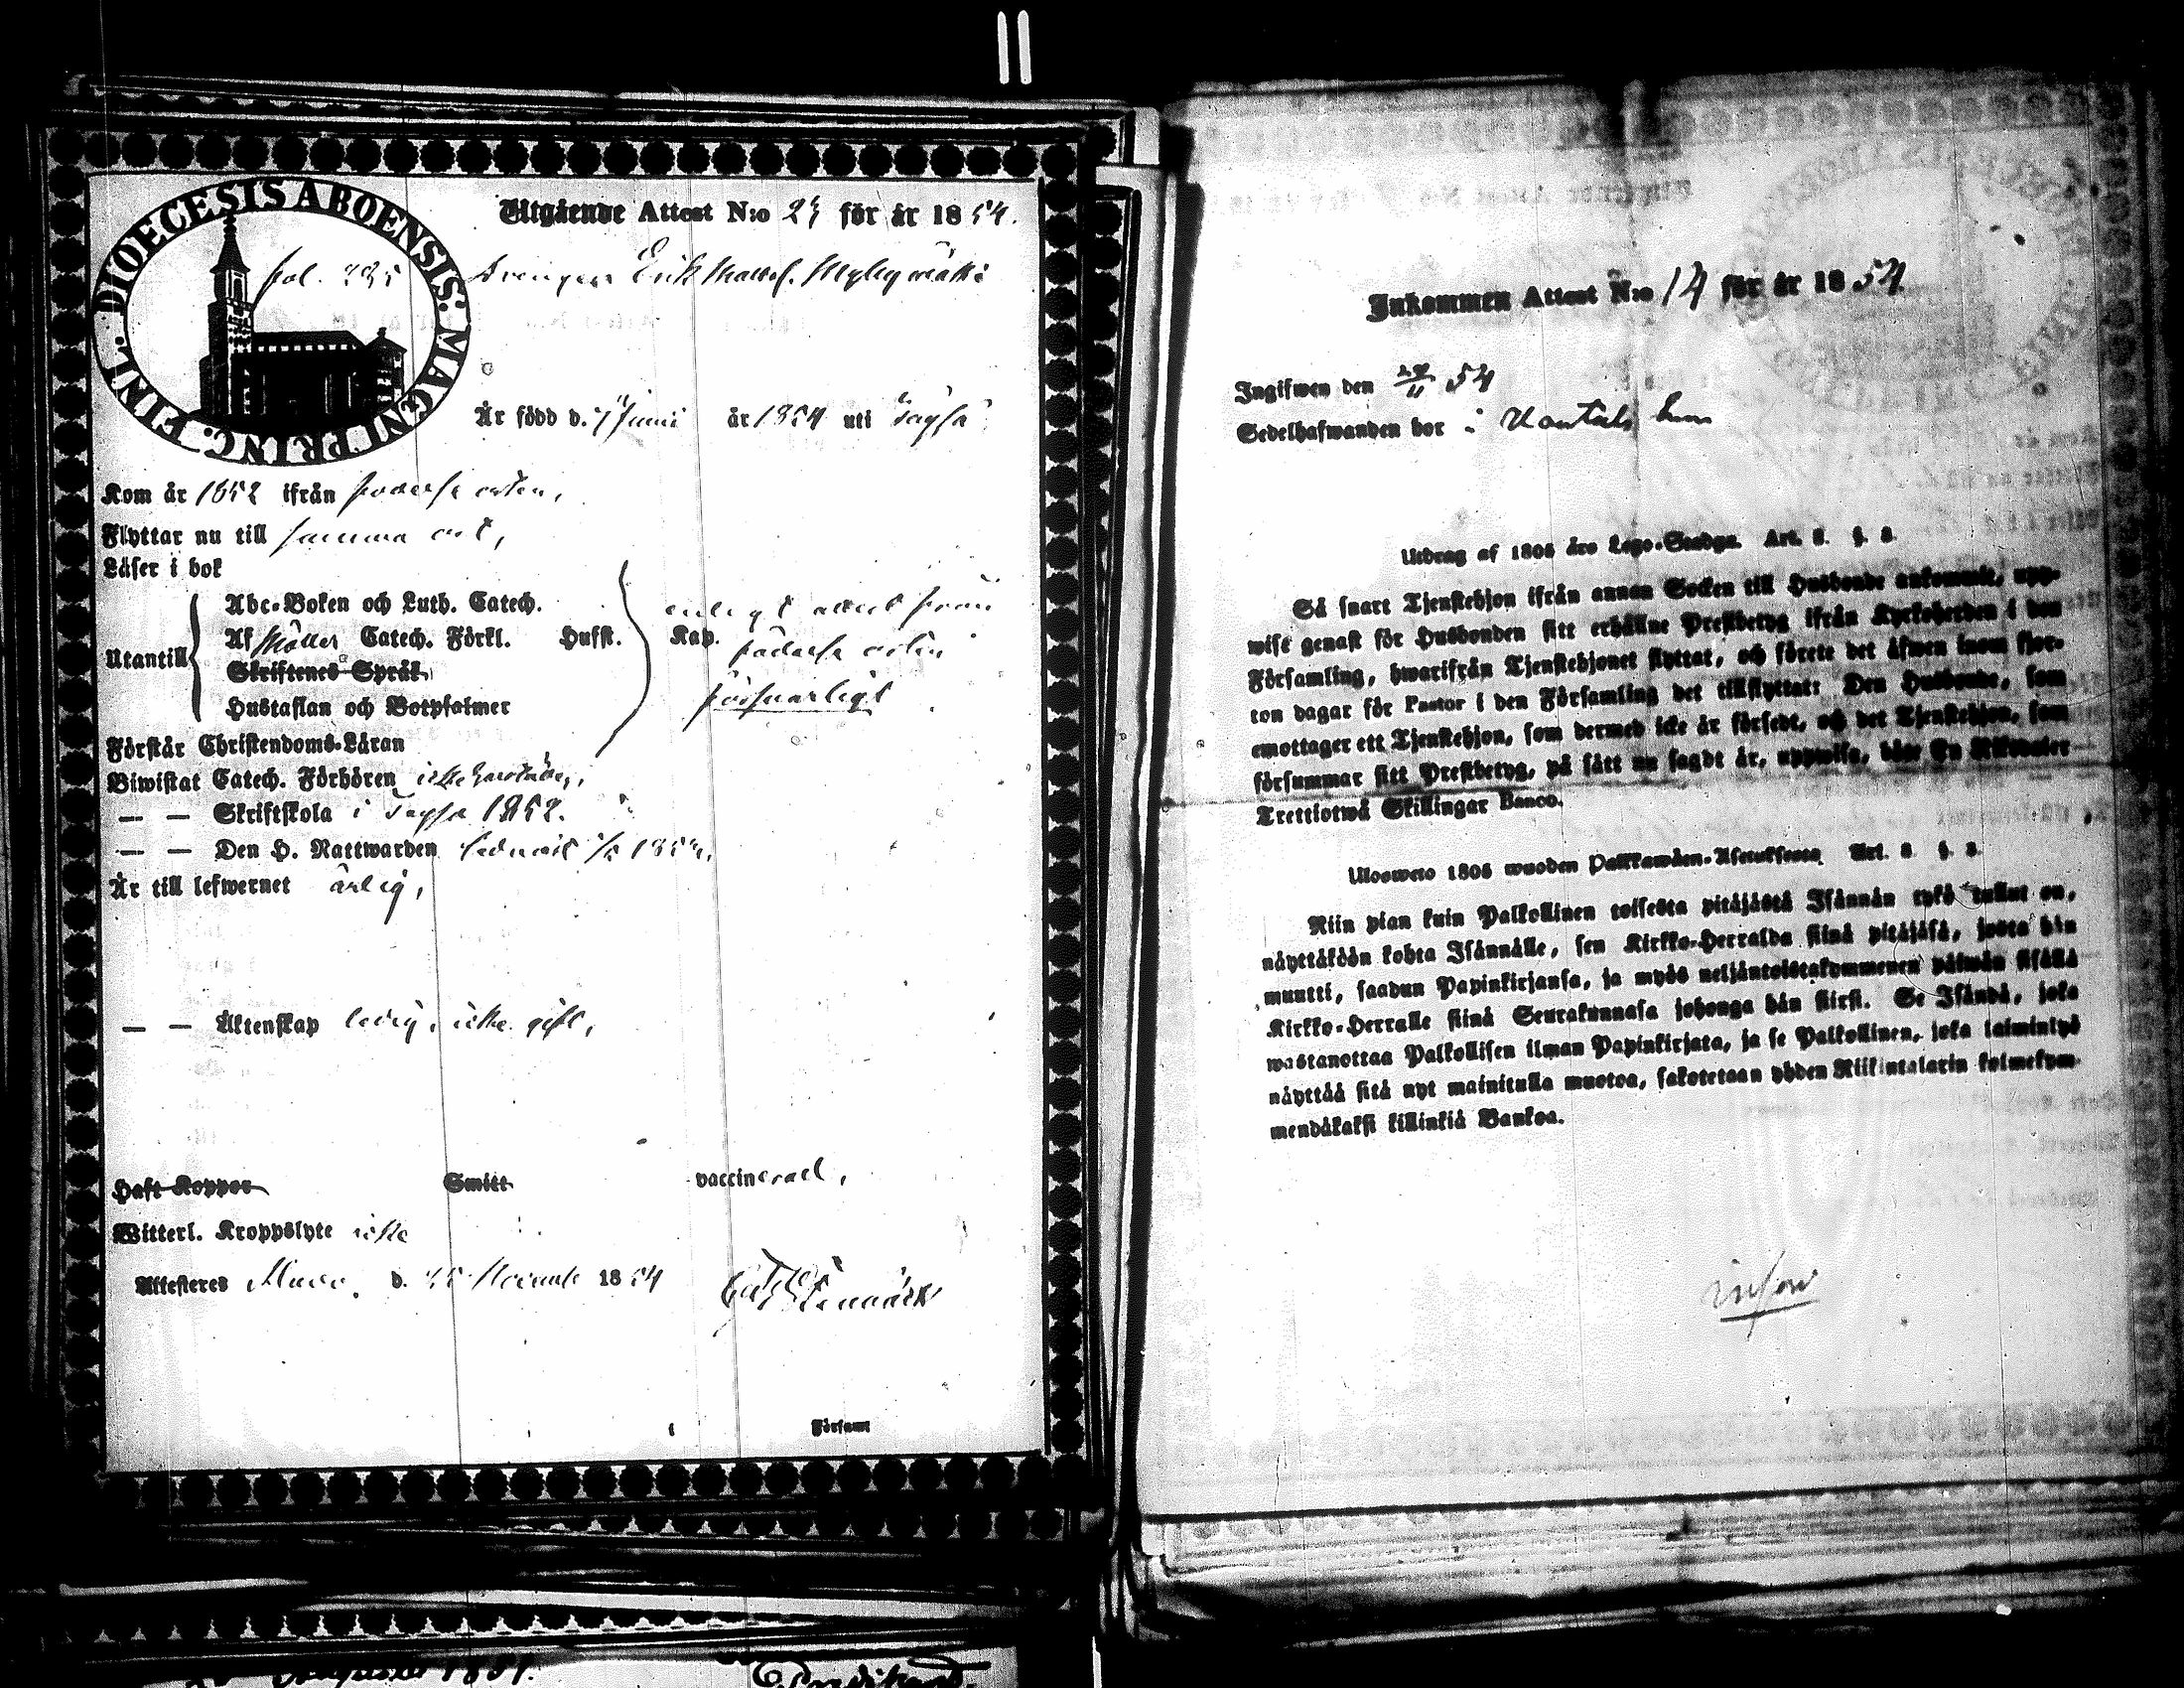 DIOECESIS ABOENSIS. MAGNI PRINC. FINL.
Utgående Attest N:o 23 för år 1854.
fol. 235 Drängen Erik Matts. Myllymäki
Är född d. 7 Junii år 1834 uti
Kom år 1852 ifrån födelse orten,
Flyttar nu till samma ort,
Läser i bok
Abc-Boken och Luth. Catech. enligt attest från
Utantill Af Möllers Catech. Förkl. Husst. Kap. födelse orten
Skriftenes Språk
Hustaflan och Botpsalmer försvarligt
Förstår Christendoms-Läran
Biwistat Catech. Förhören icke
— — Skriftskola i 1852.
— — Den H. Nattwarden 1854,
Är till lefwernet ärlig,
— — Äktenskap ledig, icke gift,
Haft Koppor Smitt vaccinerad,
Witterl. Kroppslyte icke
Attesteres d. November 1854
Församl
Inkommen Attest N:o 14 för år 1854
Ingifwen den 54
Sedelhafwanden bor i
Utdrag af 1805 års Lego-Stadga. Art. 8. §. 8.
Så snart Tjenstehjon ifrån annan Socken till Husbonde ankommit, upp-
wise genast för Husbonden sitt erhållne Prestbetyg ifrån Kyrkoherden i den
Församling, hwarifrån Tjenstehjonet flyttat, och förete det äfwen inom fjor-
ton dagar för Pastor i den Församling det tillflyttat: Den Husbonde, som
emottager ett Tjenstehjon, som dermed icke är försedt, och det Tjenstehjon, som
försummar sitt Prestbetyg, på sätt nu sagdt är, uppwisa, böte En Riksdaler
Trettiotwå Skillingar Banco.
Ulosweto 1805 wuoden Palkkawäen-Asetuksesta Art. 8. §. 8.
Niin pian kuin Palkollinen toisesta pitäjästä Isännän tykö tullut on,
näyttäköön kohta Isännälle, sen Kirkko-Herralda siinä pitäjäsä, josta hän
muutti, saadun Papinkirjansa, ja myös neljäntoistakymmenen päiwän sisällä
Kirkko-Herralle siinä Seurakunnasa johonga hän siirsi. Se Isändä, joka
wastanottaa Palkollisen ilman Papinkirjata, ja se Palkollinen, joka laimintyö
näyttää sitä nyt mainitulla muotoa, sakotetaan yhden Riikintalarin kolmekym-
mendäkaksi killinkiä Bankoa.